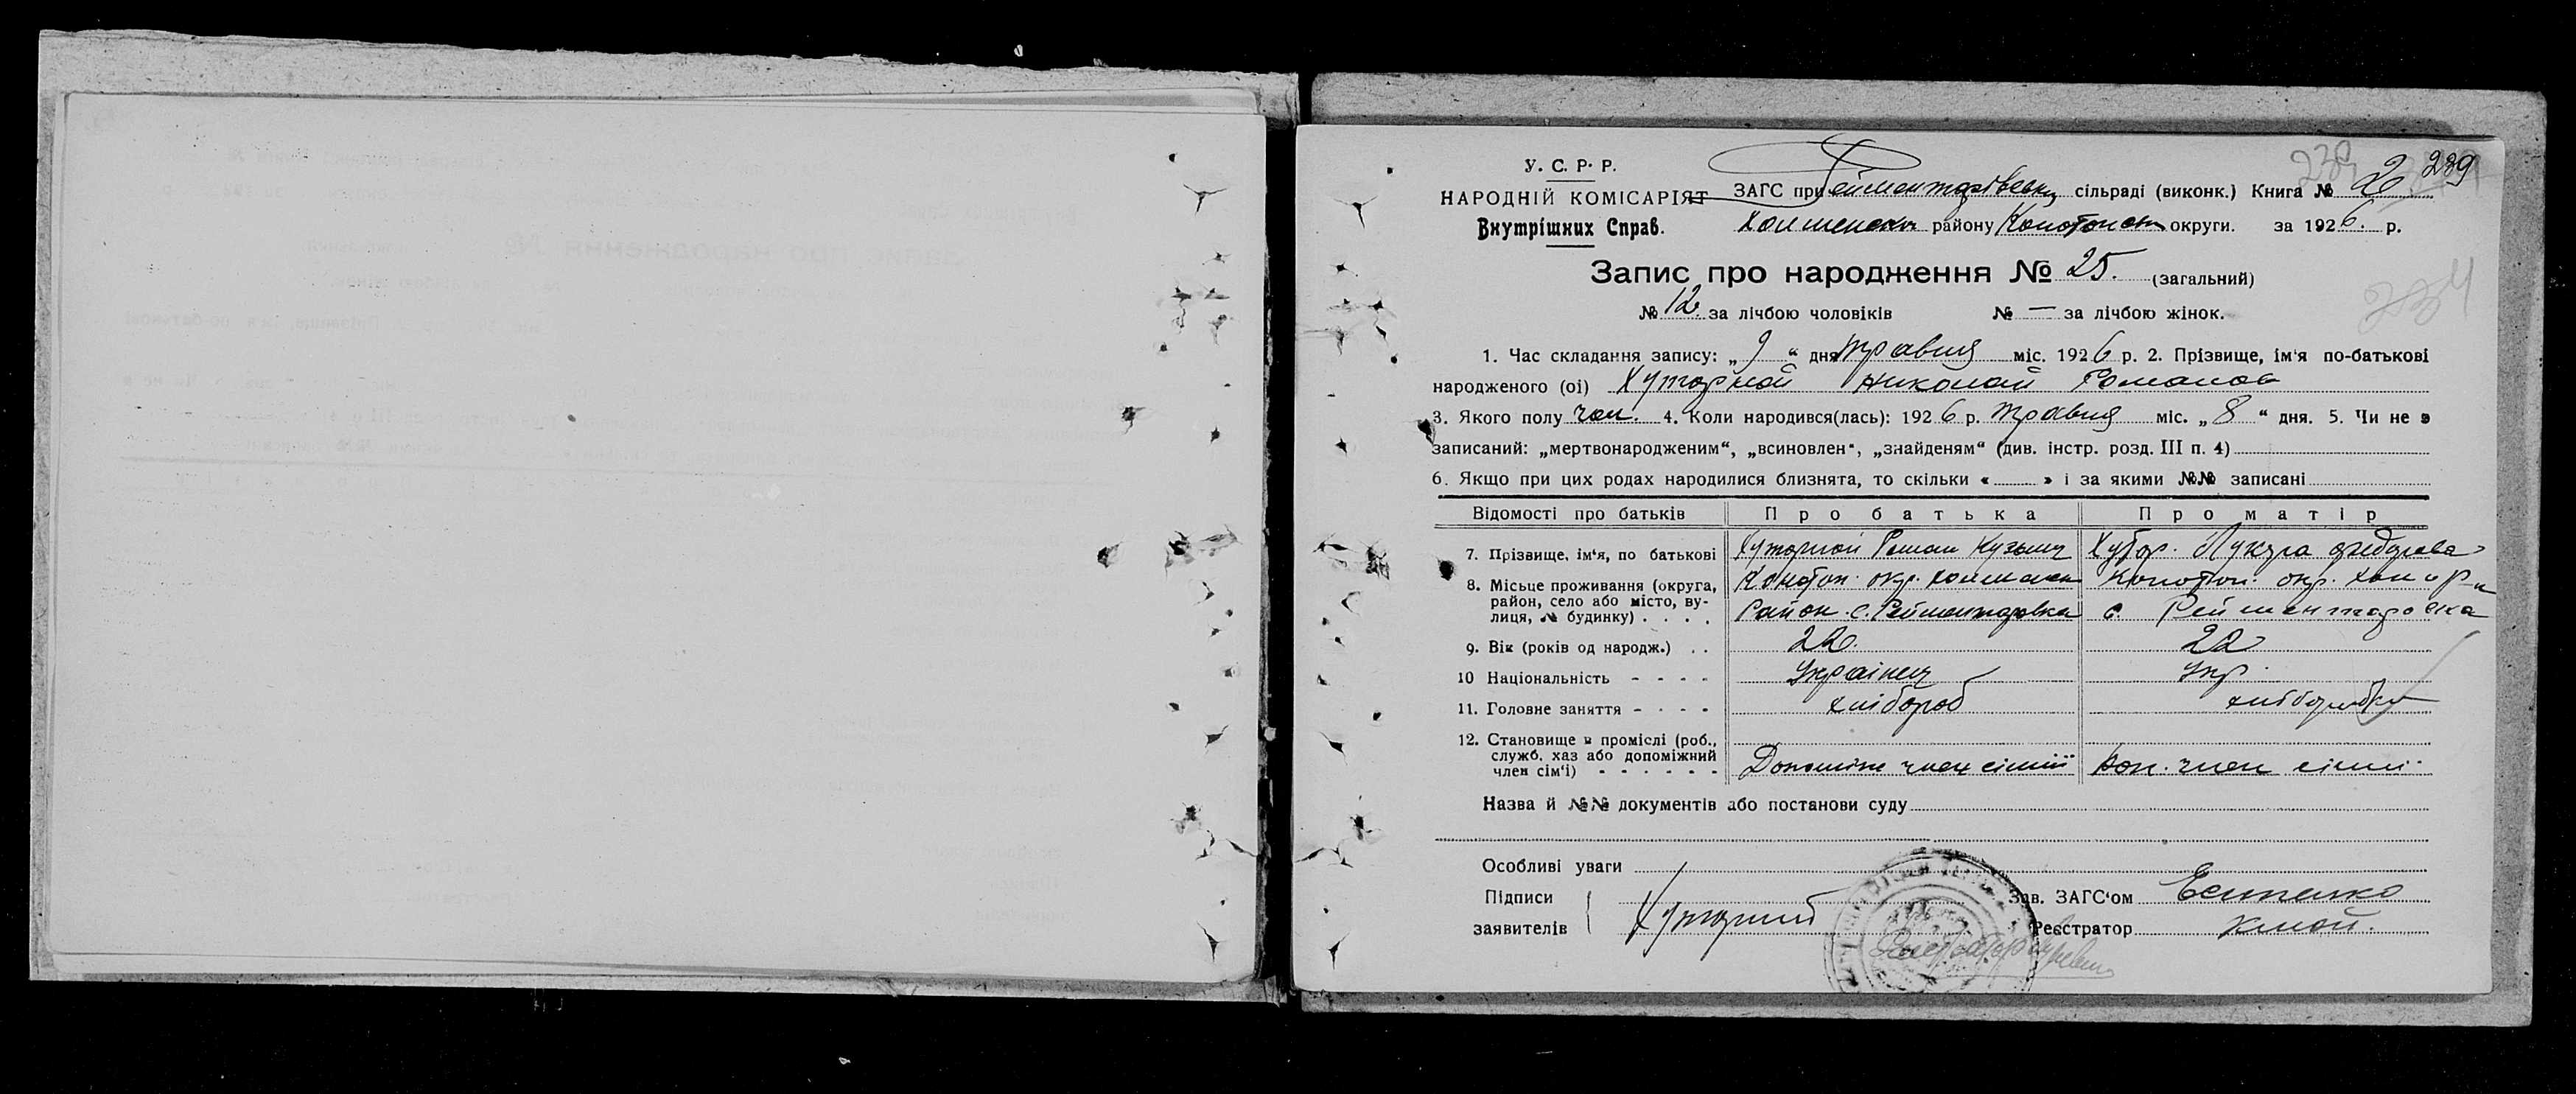 У. С. Р. Р.
НАРОДНІЙ КОМІСАРІЯТ
Внутрішних Справ.
239
239
ЗАГС при Рейментарівськ сільраді (виконк.) Книга № 2
Холменськ району Конотопськ округи. за 1926. р.
Запис про народження № 25. (загальний)
234
№ 12. за лічбою чоловіків № — за лічбою жінок.
1. Час складання запису: „ 9 “ дня травня міс. 1926 р. 2. Прізвище, ім'я по-батькові
народженого (ої) Хуторной Николай Романов
3. Якого полу чол. 4. Коли народився(лась): 1926 р. травня міс. „ 8 “ дня. 5. Чи не є
записаний: „мертвонародженим“, „всиновлен“, „знайденям“ (див. інстр. розд. III п. 4)
6. Якщо при цих родах народилися близнята, то скільки « » і за якими №№ записані
Відомості про батьків Про батька Про матір
7. Прізвище, ім'я, по батькові Хуторной Роман Кузьмич Хутор. Лукія Федорова
8. Місьце проживання (округа, Конотоп. окр. Холменск Конотоп. окр. Хол. р-н
район, село або місто, ву- район. с. Рейментаровка с. Рейментаровка
лиця, № будинку) . . . .
9. Вік (років од народж.) . . 22. 22
10 Національність - - - - Українец Укр.
11. Головне заняття - - - - хлібороб хліборобка
12. Становище в промислі (роб.,
служб. хаз або допоміжний
член сім'ї) - - - - - - Допоміж член сімиї Доп. член сімиї
Назва й №№ документів або постанови суду
Особливі уваги
Підписи
заявителів Хуторний
Зав. ЗАГС'ом
Реєстратор